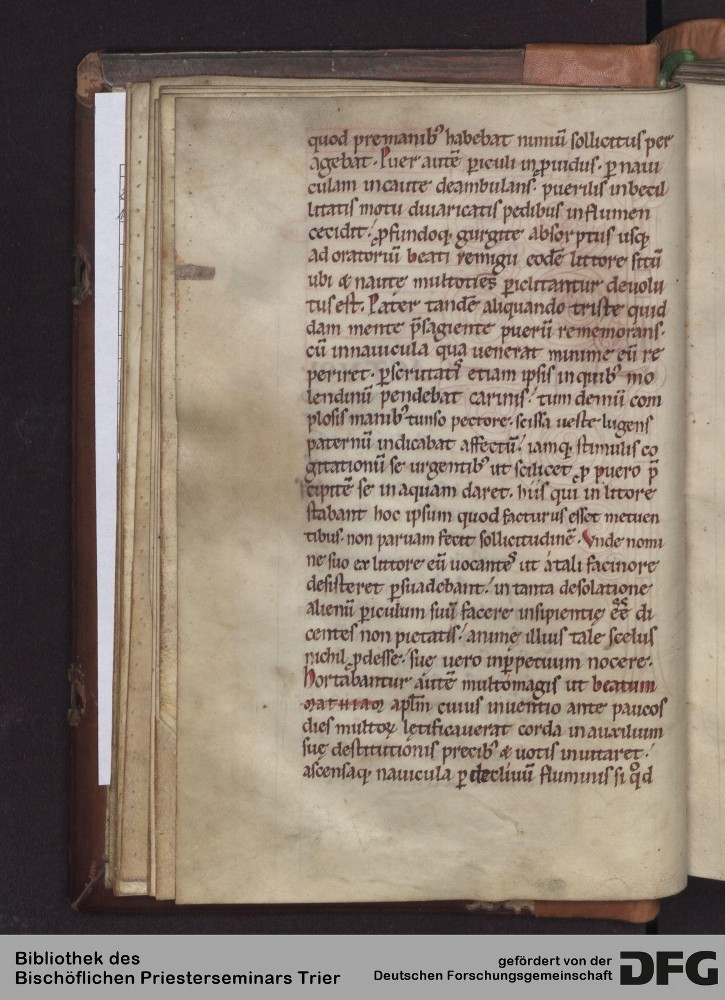 quod pre manib᷒ habebat nimiū sollicitus per
agebat. Puer autē ꝑiculi inꝓuidus. ꝑ naui
culam incaute deambulans. puerilis inbecil
litatis motu diuaricatis pedibus in flumen
cecidit. ꝓfundoqꝫ gurgite absorptus usqꝫ
ad oratoriū beati remigii eodē littore sitū
ubi & naute multoties ꝑiclitantur deuolu
tus est. Pater tandē aliquando triste quid
dam mente p̄sagiente puerū rememorans.
cū in nauicula qua uenerat minime eū re
periret. ꝑscrutat᷒ etiam ipsis in quib᷒ mo
lendinū pendebat carinis. tum demū com
plosis manib᷒ tunso pectore. scissa ueste lugens
paternū indicabat affectū. iamqꝫ stimulis co
gitationū se urgentib᷒ ut scilicet ꝓ puero p̄
cipitē se in aquam daret. hiis qui in littore
stabant hoc ipsum quod facturus esset metuen
tibus. non paruam fecit sollicitudinē. Vnde nomi
ne suo ex littore eū uocantes ut a tali facinore
desisteret ꝑsuadebant. in tanta desolatione
alienū ꝑiculum suū facere insipientię ēē di
centes non pietatis. animę illius tale scelus
nichil ꝓdesse. sue uero inꝑpetuum nocere.
Hortabantur autē multomagis ut beatum
mathiam apl̄m cuius inuentio ante paucos
dies multoꝝ letificauerat corda in auxilium
suę destitutionis precib᷒ & uotis inuitaret.
ascensaqꝫ nauicula ꝑ decliuū fluminis si qͦd
Bibliothek des
Bischöflichen Priesterseminars Trier
gefördert von der
Deutschen Forschungsgemeinschaft
DFG